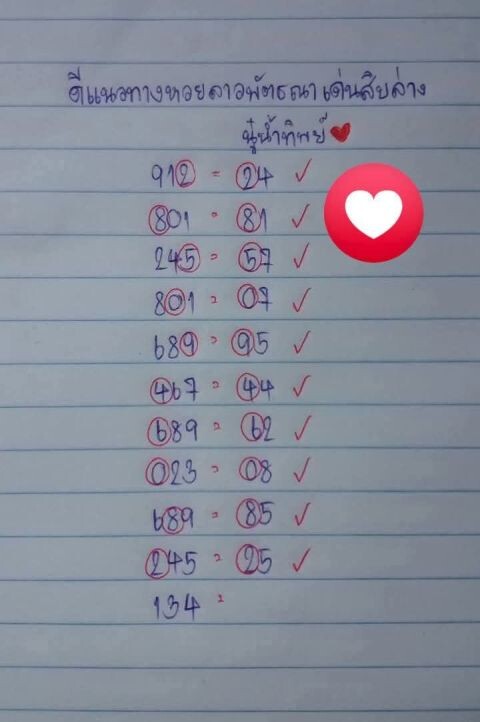 ดีแนวทางหวยลาวพัฒนา เด่นสิบล่าง
นู๋น้ำทิพย์
912 = 24 ✓
801 = 81 ✓
245 = 57 ✓
801 = 07 ✓
689 = 95 ✓
467 = 44 ✓
689 = 62 ✓
023 = 08 ✓
689 = 85 ✓
245 = 25 ✓
134 =